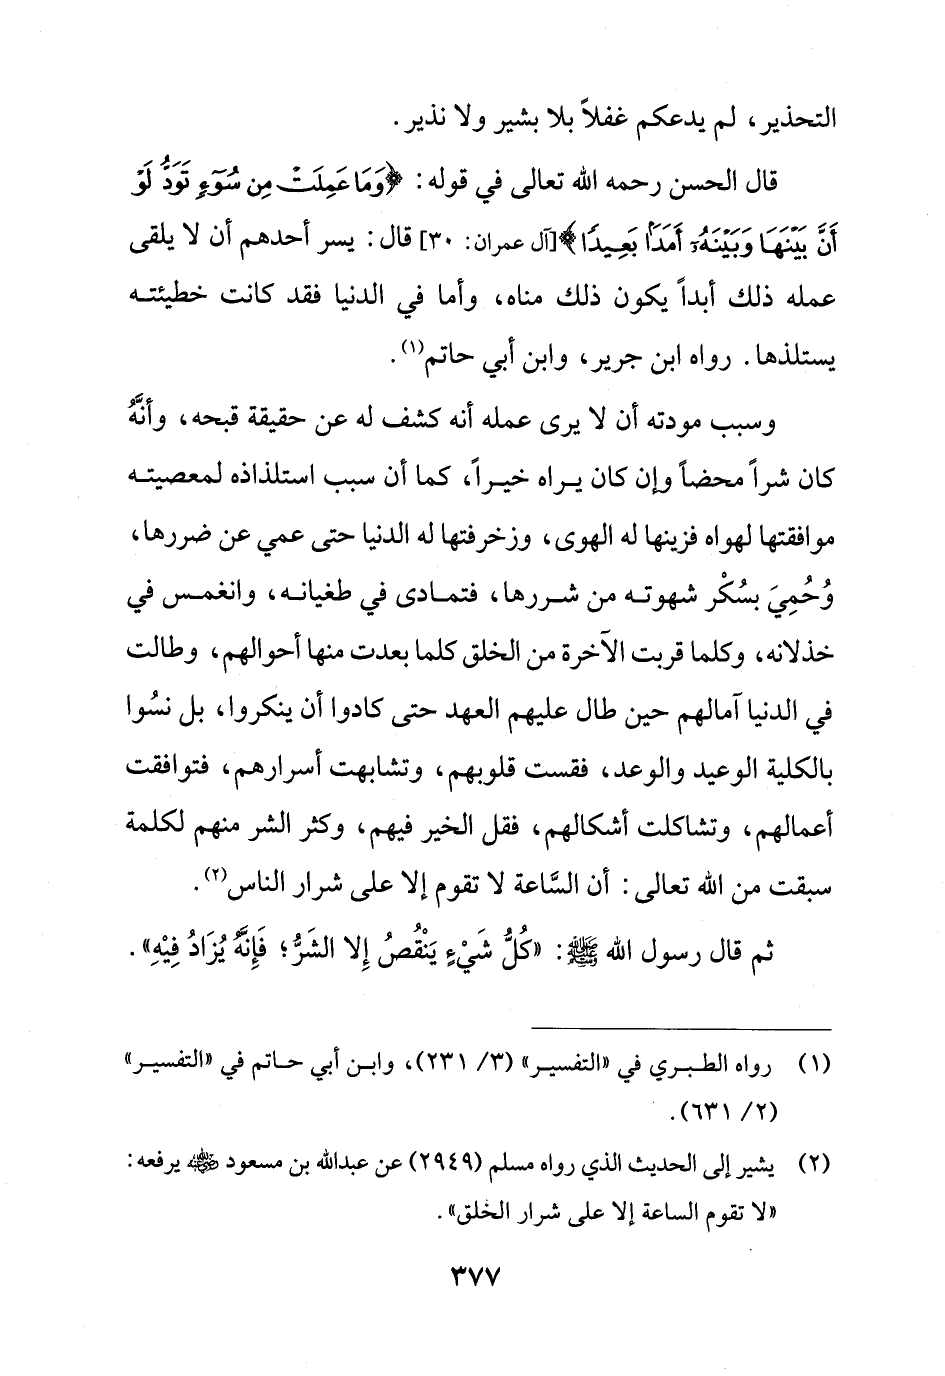 التحذير، لم يدعكم غفلاً بلا بشير ولا نذير.
قال الحسن رحمه الله تعالى في قوله: ﴿وَمَا عَمِلَتْ مِن سُوٓءٍ تَوَدُّ لَوْ
أَنَّ بَيْنَهَا وَبَيْنَهُۥٓ أَمَدًۢا بَعِيدًا﴾ [آل عمران: ٣٠] قال: يسر أحدهم أن لا يلقى
عمله ذلك أبداً يكون ذلك مناه، وأما في الدنيا فقد كانت خطيئتـه
يستلذها. رواه ابن جرير، وابن أبي حاتم(١).
وسبب مودته أن لا يرى عمله أنه كشف له عن حقيقة قبحه، وأنَّهُ
كان شراً محضاً وإن كان يـراه خيـراً، كما أن سبب استلذاذه لمعصيتـه
موافقتها لهواه فزينها له الهوى، وزخرفتها له الدنيا حتى عمي عن ضررها،
وُحُمِيَ بسُكْر شهوتـه من شـررها، فتمـادى في طغيانـه، وانغمـس في
خذلانه، وكلما قربت الآخرة من الخلق كلما بعدت منها أحوالهم، وطالت
في الدنيا آمالهم حين طال عليهم العهد حتى كادوا أن ينكروا، بل نسُوا
بالكلية الوعيد والوعد، فقست قلوبهم، وتشابهت أسرارهم، فتوافقت
أعمالهم، وتشاكلت أشكالهم، فقل الخير فيهم، وكثر الشر منهم لكلمة
سبقت من الله تعالى: أن السَّاعة لا تقوم إلا على شرار الناس(٢).
ثم قال رسول الله ﷺ: «كُلُّ شَيْءٍ يَنْقُصُ إِلا الشَرُّ؛ فَإِنَّهُ يُزَادُ فِيْهِ».
(١) رواه الطـبري في «التفسيـر» (٣/ ٢٣١)، وابـن أبي حـاتم في «التفسيـر»
(٢/ ٦٣١).
(٢) يشير إلى الحديث الذي رواه مسلم (٢٩٤٩) عن عبدالله بن مسعود رضي الله عنه يرفعه:
«لا تقوم الساعة إلا على شرار الخلق».
٣٧٧